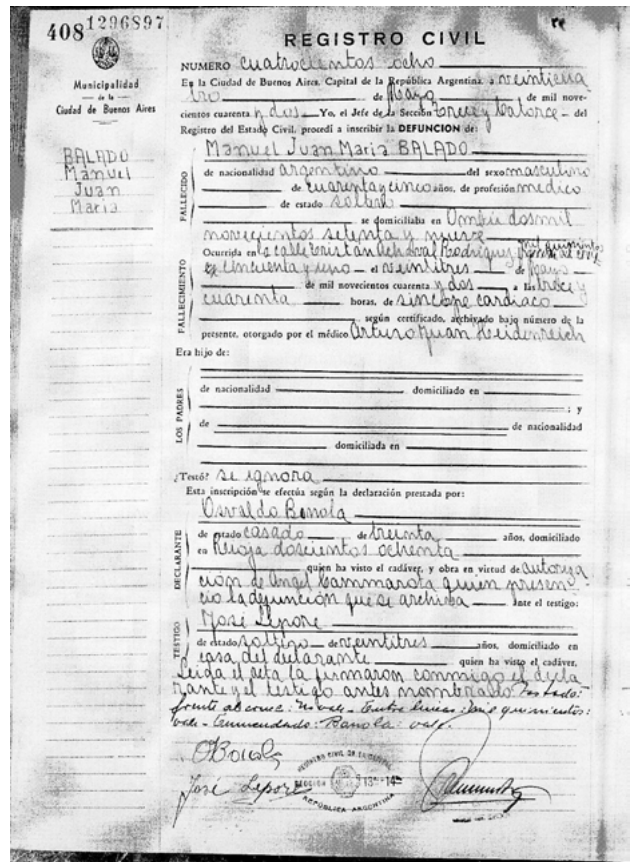 408 1296897
Municipalidad
de la
Ciudad de Buenos Aires
BALADO
Manuel
Juan
Maria
REGISTRO CIVIL
NUMERO cuatrocientos ocho
En la Ciudad de Buenos Aires, Capital de la República Argentina, a veinticua
tro de Mayo de mil nove-
cientos cuarenta y dos Yo, el Jefe de la Sección Trece y Catorce del
Registro del Estado Civil, procedí a inscribir la DEFUNCION de:
Manuel Juan Maria BALADO
FALLECIDO
de nacionalidad argentino del sexo masculino
de cuarenta y cinco años, de profesión medico
de estado soltero
se domiciliaba en Ombú dosmil
novecientos setenta y nueve
mil quinientos
FALLECIMIENTO
Ocurrida en la calle Cristian Rodriguez
cincuenta y uno el veintitres de Mayo
de mil novecientos cuarenta y dos a las trece y
cuarenta horas, de síncope cardiaco
según certificado, archivado bajo número de la
presente, otorgado por el médico Arturo Juan Heidenreich
Era hijo de:
LOS PADRES
de nacionalidad domiciliado en
; y
de de nacionalidad
domiciliada en
¿Testó? se ignora
Esta inscripción se efectúa según la declaración prestada por:
Osvaldo Banola
DECLARANTE
de estado casado de treinta años, domiciliado
en Rioja doscientos ochenta
quien ha visto el cadáver, y obra en virtud de autoriza
ción de Angel Cammarota quien presen
cio la defunción que se archiva ante el testigo:
José Lepore
TESTIGO
de estado soltero de veintitres años, domiciliado en
casa del declarante quien ha visto el cadáver.
Leida el acta la firmaron conmigo el decla
rante y el testigo antes nombrados Testado:
frente al cruce: no vale - Entre lineas: mil quinientos:
vale - Enmendado: Banola: vale.
José Lepore
REGISTRO CIVIL DE LA CAPITAL
SECCION 13ª 14ª
REPUBLICA ARGENTINA